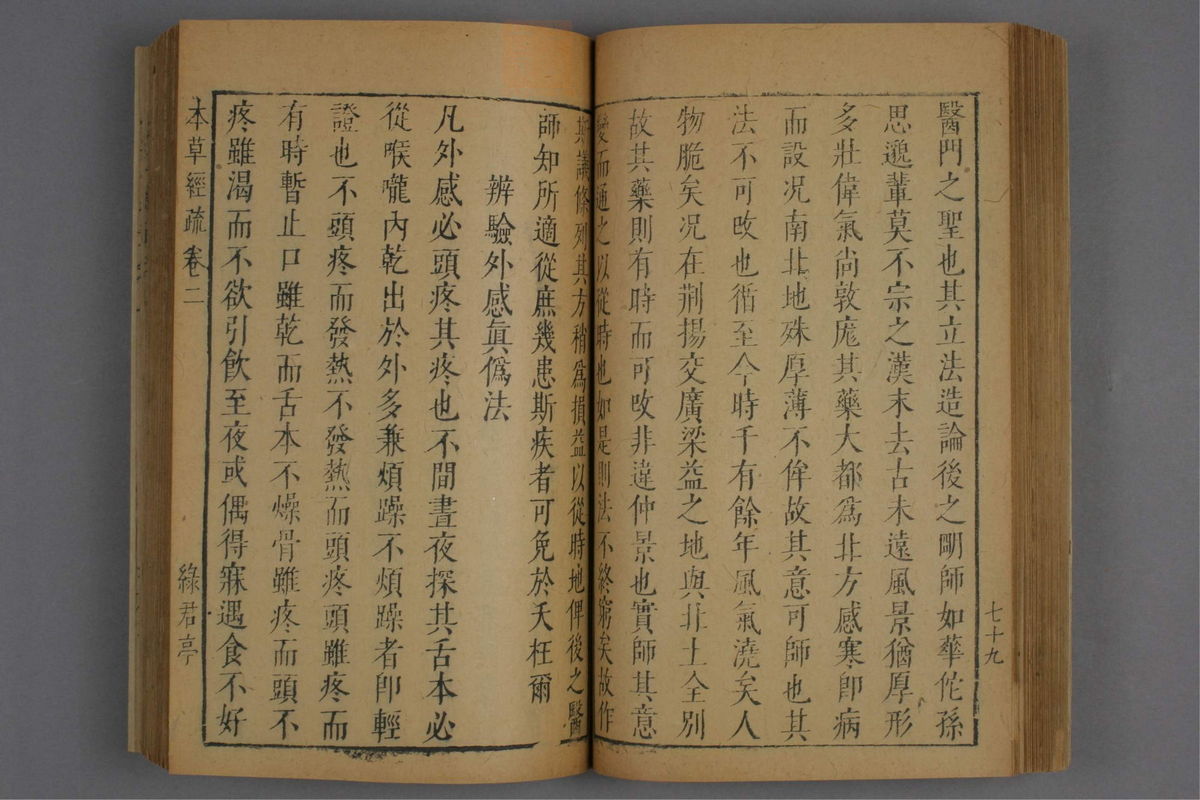 醫門之聖也其立法造論後之明師如華佗孫
思邈輩莫不宗之漢末去古未遠風景猶厚形
多壯偉氣尚敦厖其藥大都爲北方感寒卽病
而設况南北地殊厚薄不侔故其意可師也其
法不可改也循至今時千有餘年風氣澆矣人
物脆矣况在荆揚交廣梁益之地與北土全别
故其藥則有時而可改非違仲景也實師其意
變而通之以從時也如是則法不終窮矣故作
斯議條列其方稍爲損益以從時地俾後之醫
師知所適從庶幾患斯疾者可免於夭枉爾
辨驗外感眞僞法
凡外感必頭疼其疼也不間晝夜探其舌本必
從喉嚨內乾出於外多兼煩躁不煩躁者卽輕
證也不頭疼而發熱不發熱而頭疼頭雖疼而
有時暫止口雖乾而舌本不燥骨雖疼而頭不
疼雖渴而不欲引飲至夜或偶得寐遇食不好
七十九
本草經疏 卷二
綠君亭